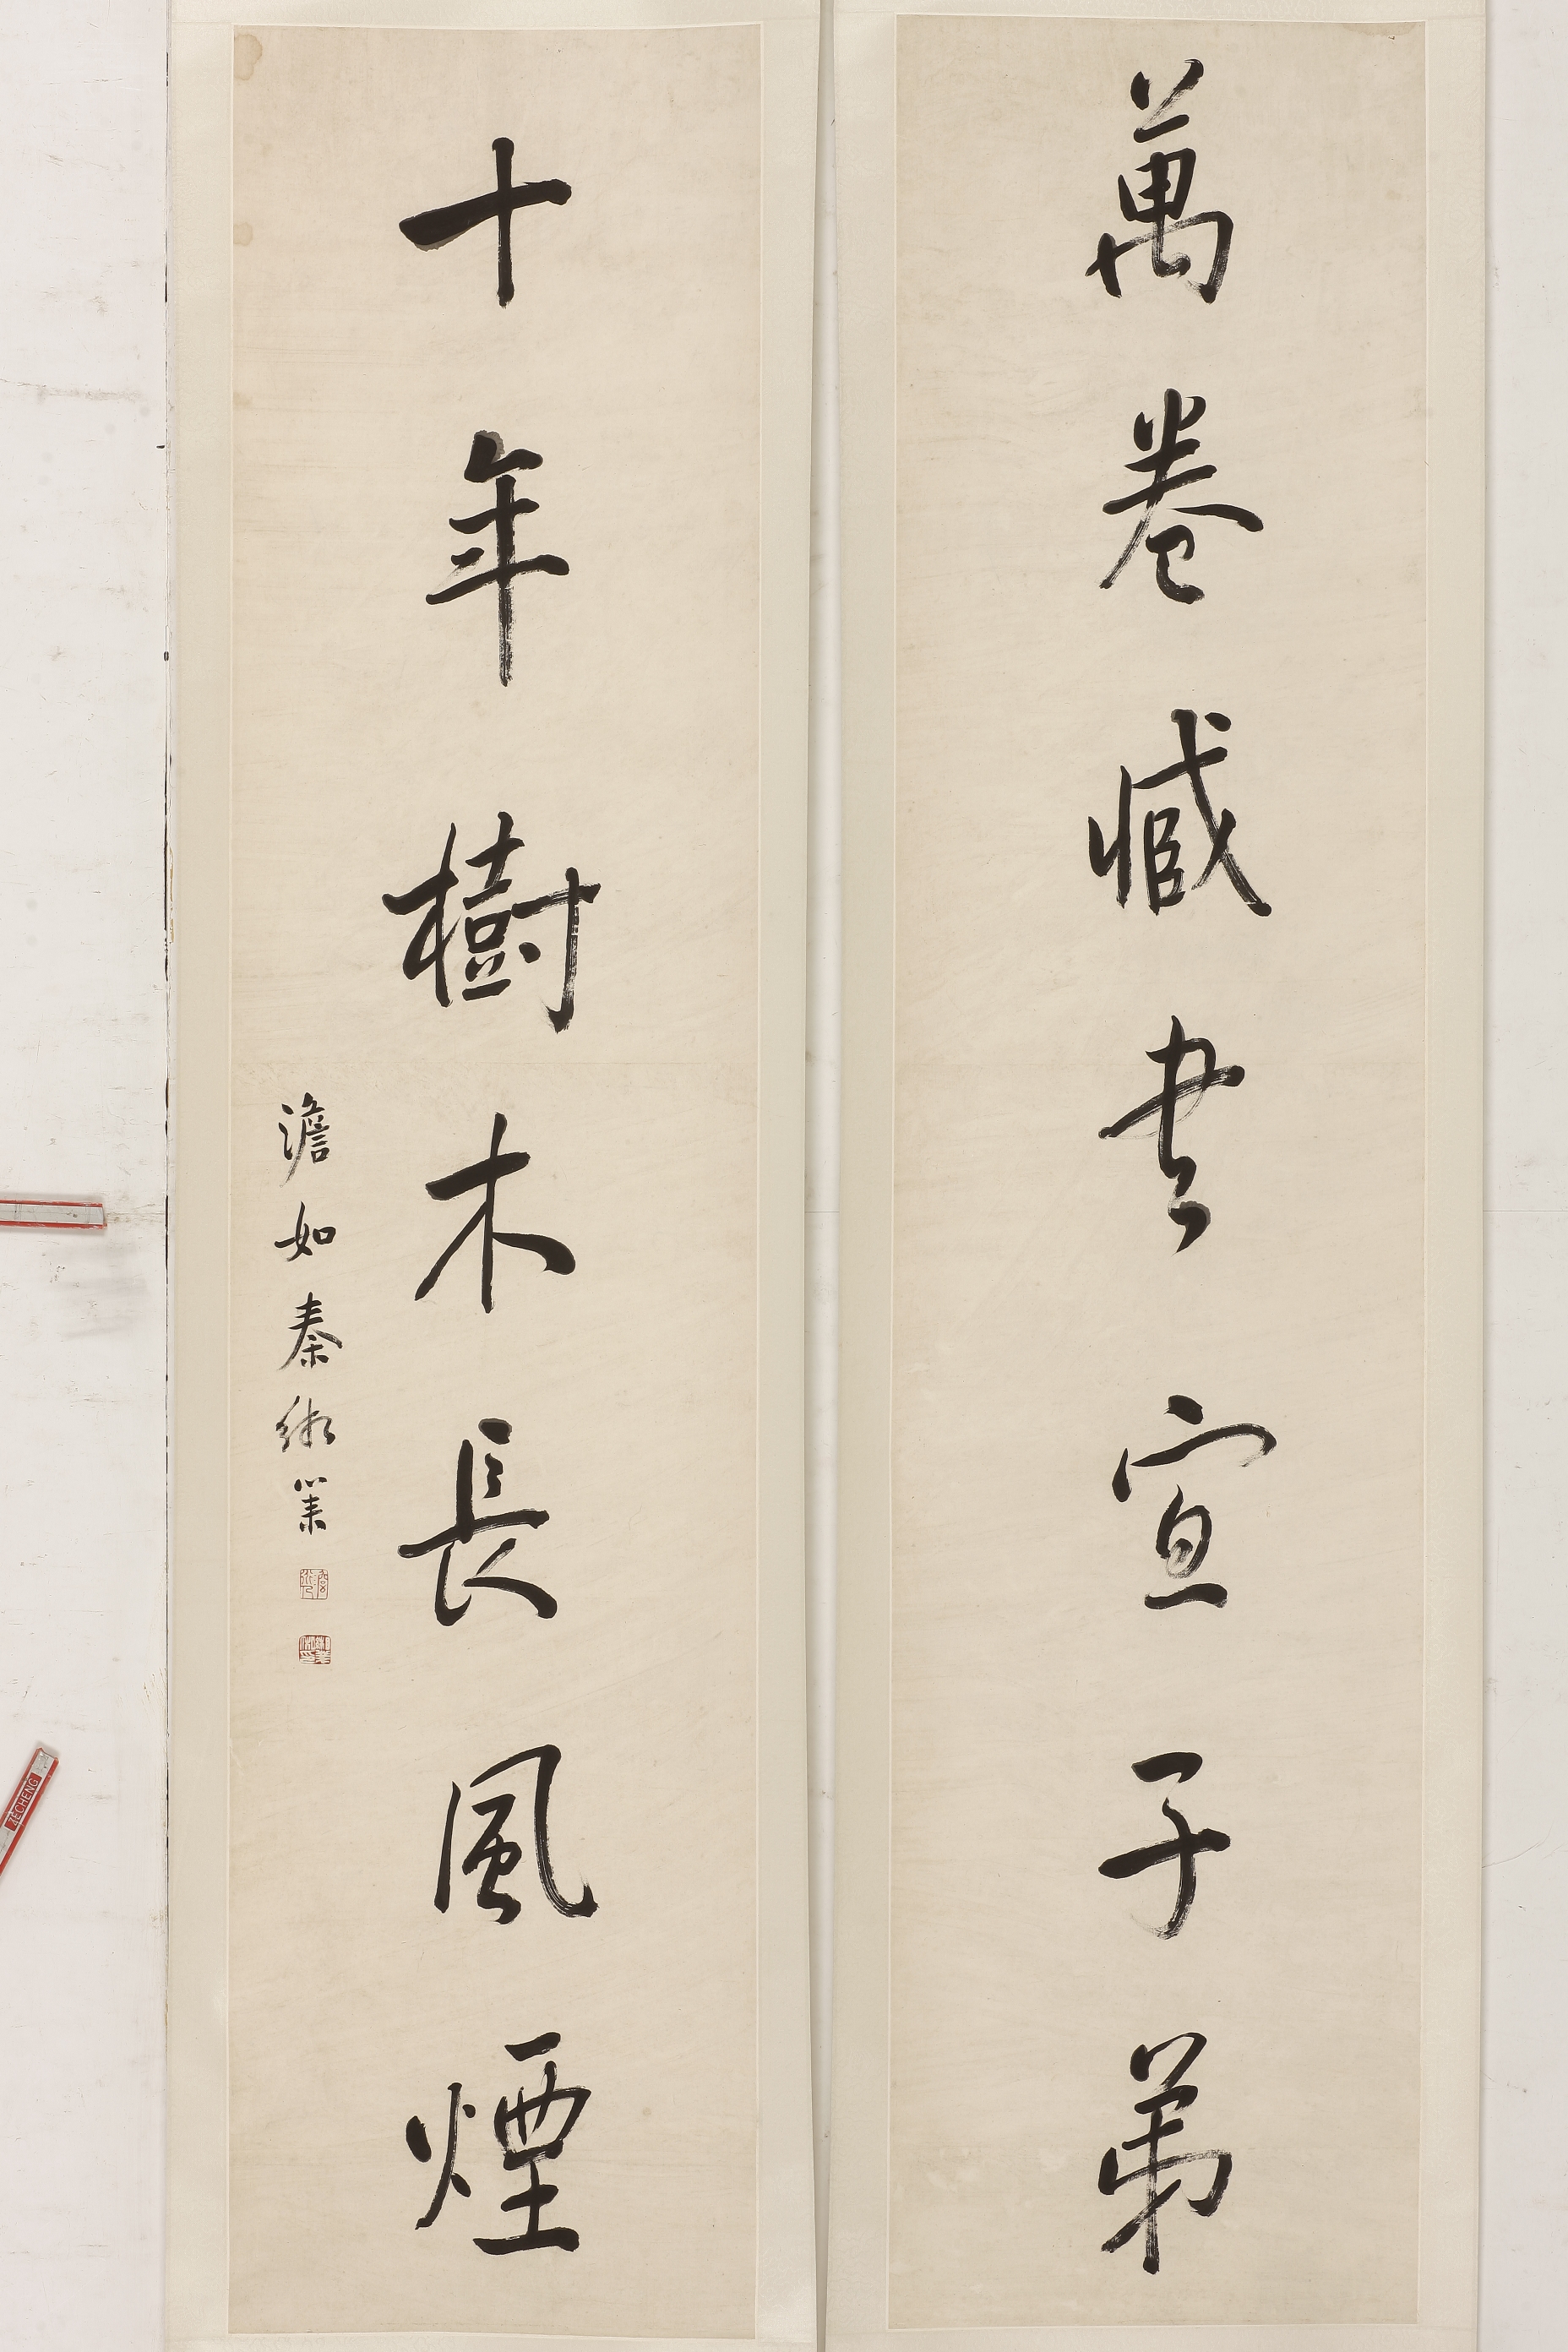 萬卷臧書宜子弟
十年樹木長風煙
澹如秦緗業
ZECHENG